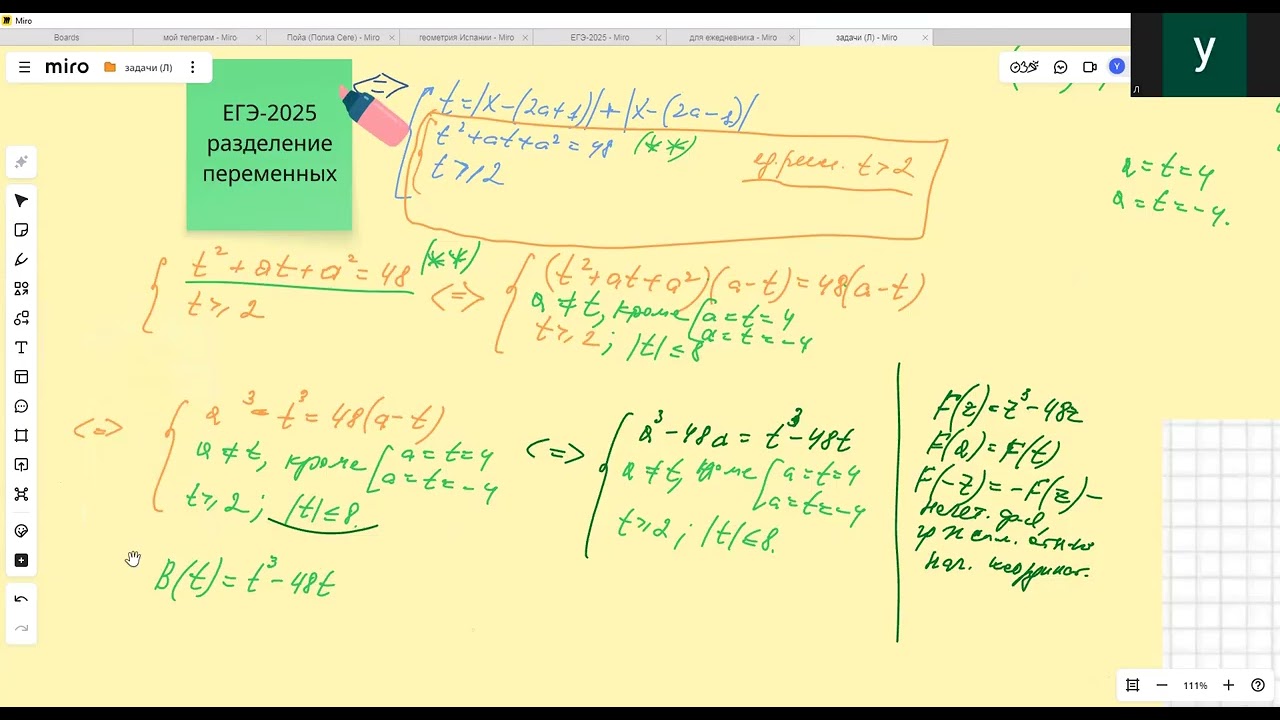 Miro
Boards
мой телеграм - Miro
Пойа (Полиа Сеге) - Miro
геометрия Испании - Miro
ЕГЭ-2025 - Miro
для ежедневника - Miro
задачи (Л) - Miro
miro
задачи (Л)
Y
У
Л
ЕГЭ-2025
разделение
переменных
<=> t = |x-(2a+1)|+|x-(2a-1)|
t² + at + a² = 48 (**)
t ⩾ 2
ед. реш. t > 2
a = t = 4
a = t = -4.
t² + at + a² = 48 (**)
t ⩾ 2
<=> (t² + at + a²)(a-t) = 48(a-t)
a ≠ t, кроме [a = t = 4
a = t = -4
t ⩾ 2; |t| ≤ 8
<=> a³ - t³ = 48(a-t)
a ≠ t, кроме [a = t = 4
a = t = -4
t ⩾ 2; |t| ≤ 8.
<=> a³ - 48a = t³ - 48t
a ≠ t, кроме [a = t = 4
a = t = -4
t ⩾ 2; |t| ≤ 8.
F(z) = z³ - 48z
F(a) = F(t)
F(-z) = -F(z) -
нечет.
нач. координат.
B(t) = t³ - 48t
111%